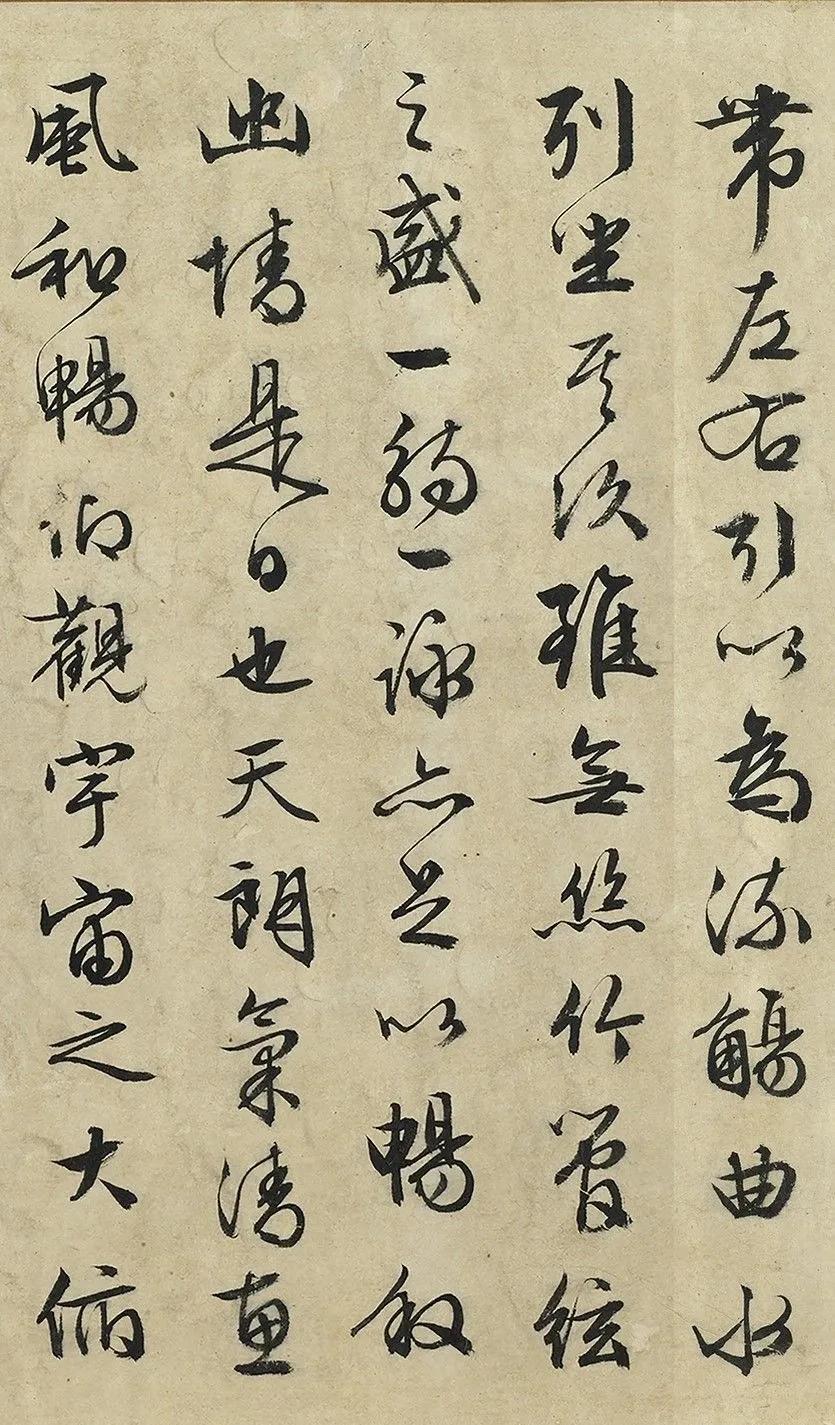 帶左右引以為流觴曲水
列坐其次雖無絲竹管絃
之盛一觴一詠亦足以暢敘
幽情是日也天朗氣清惠
風和暢仰觀宇宙之大俯